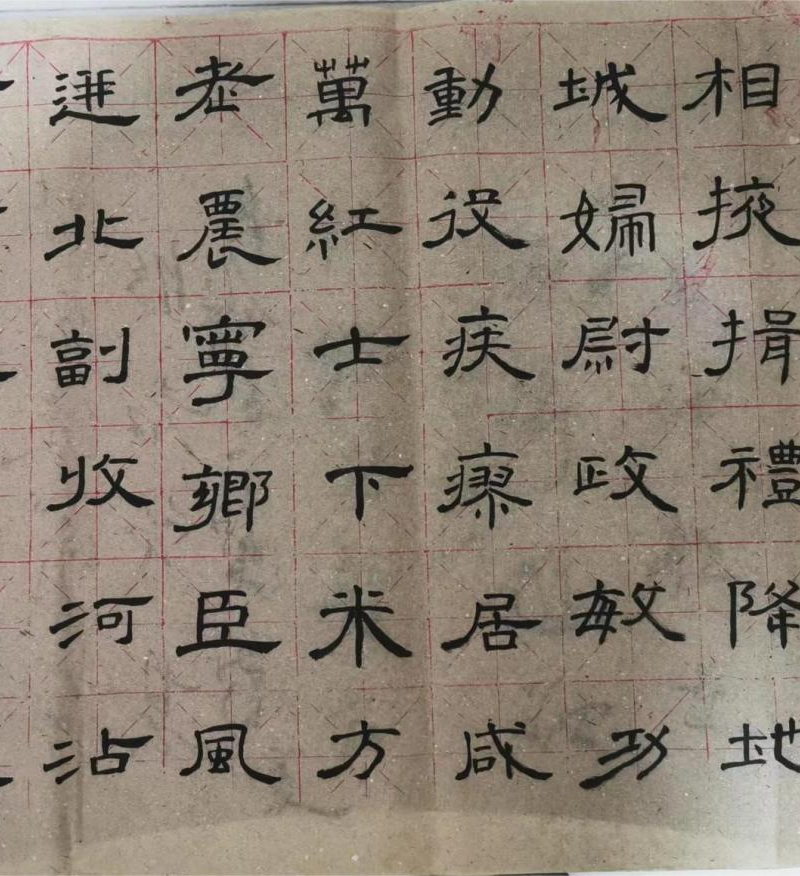 相掖揖禮降地
城婦尉政敏功
動役疾瘳居咸
萬紅士下米方
老農寧鄉臣風
進北副收河沾